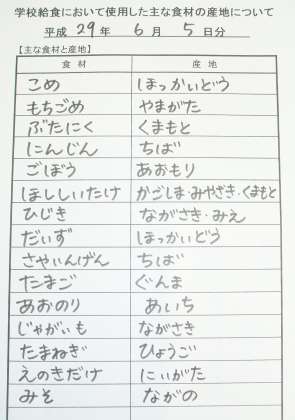 学校給食において使用した主な食材の産地について
平成 29 年 6 月 5 日分
【主な食材と産地】
食材 産地
こめ ほっかいどう
もちごめ やまがた
ぶたにく くまもと
にんじん ちば
ごぼう あおもり
ほししいたけ かごしま・みやざき・くまもと
ひじき ながさき・みえ
だいず ほっかいどう
さやいんげん ちば
たまご ぐんま
あおのり あいち
じゃがいも ながさき
たまねぎ ひょうご
えのきだけ にいがた
みそ ながの